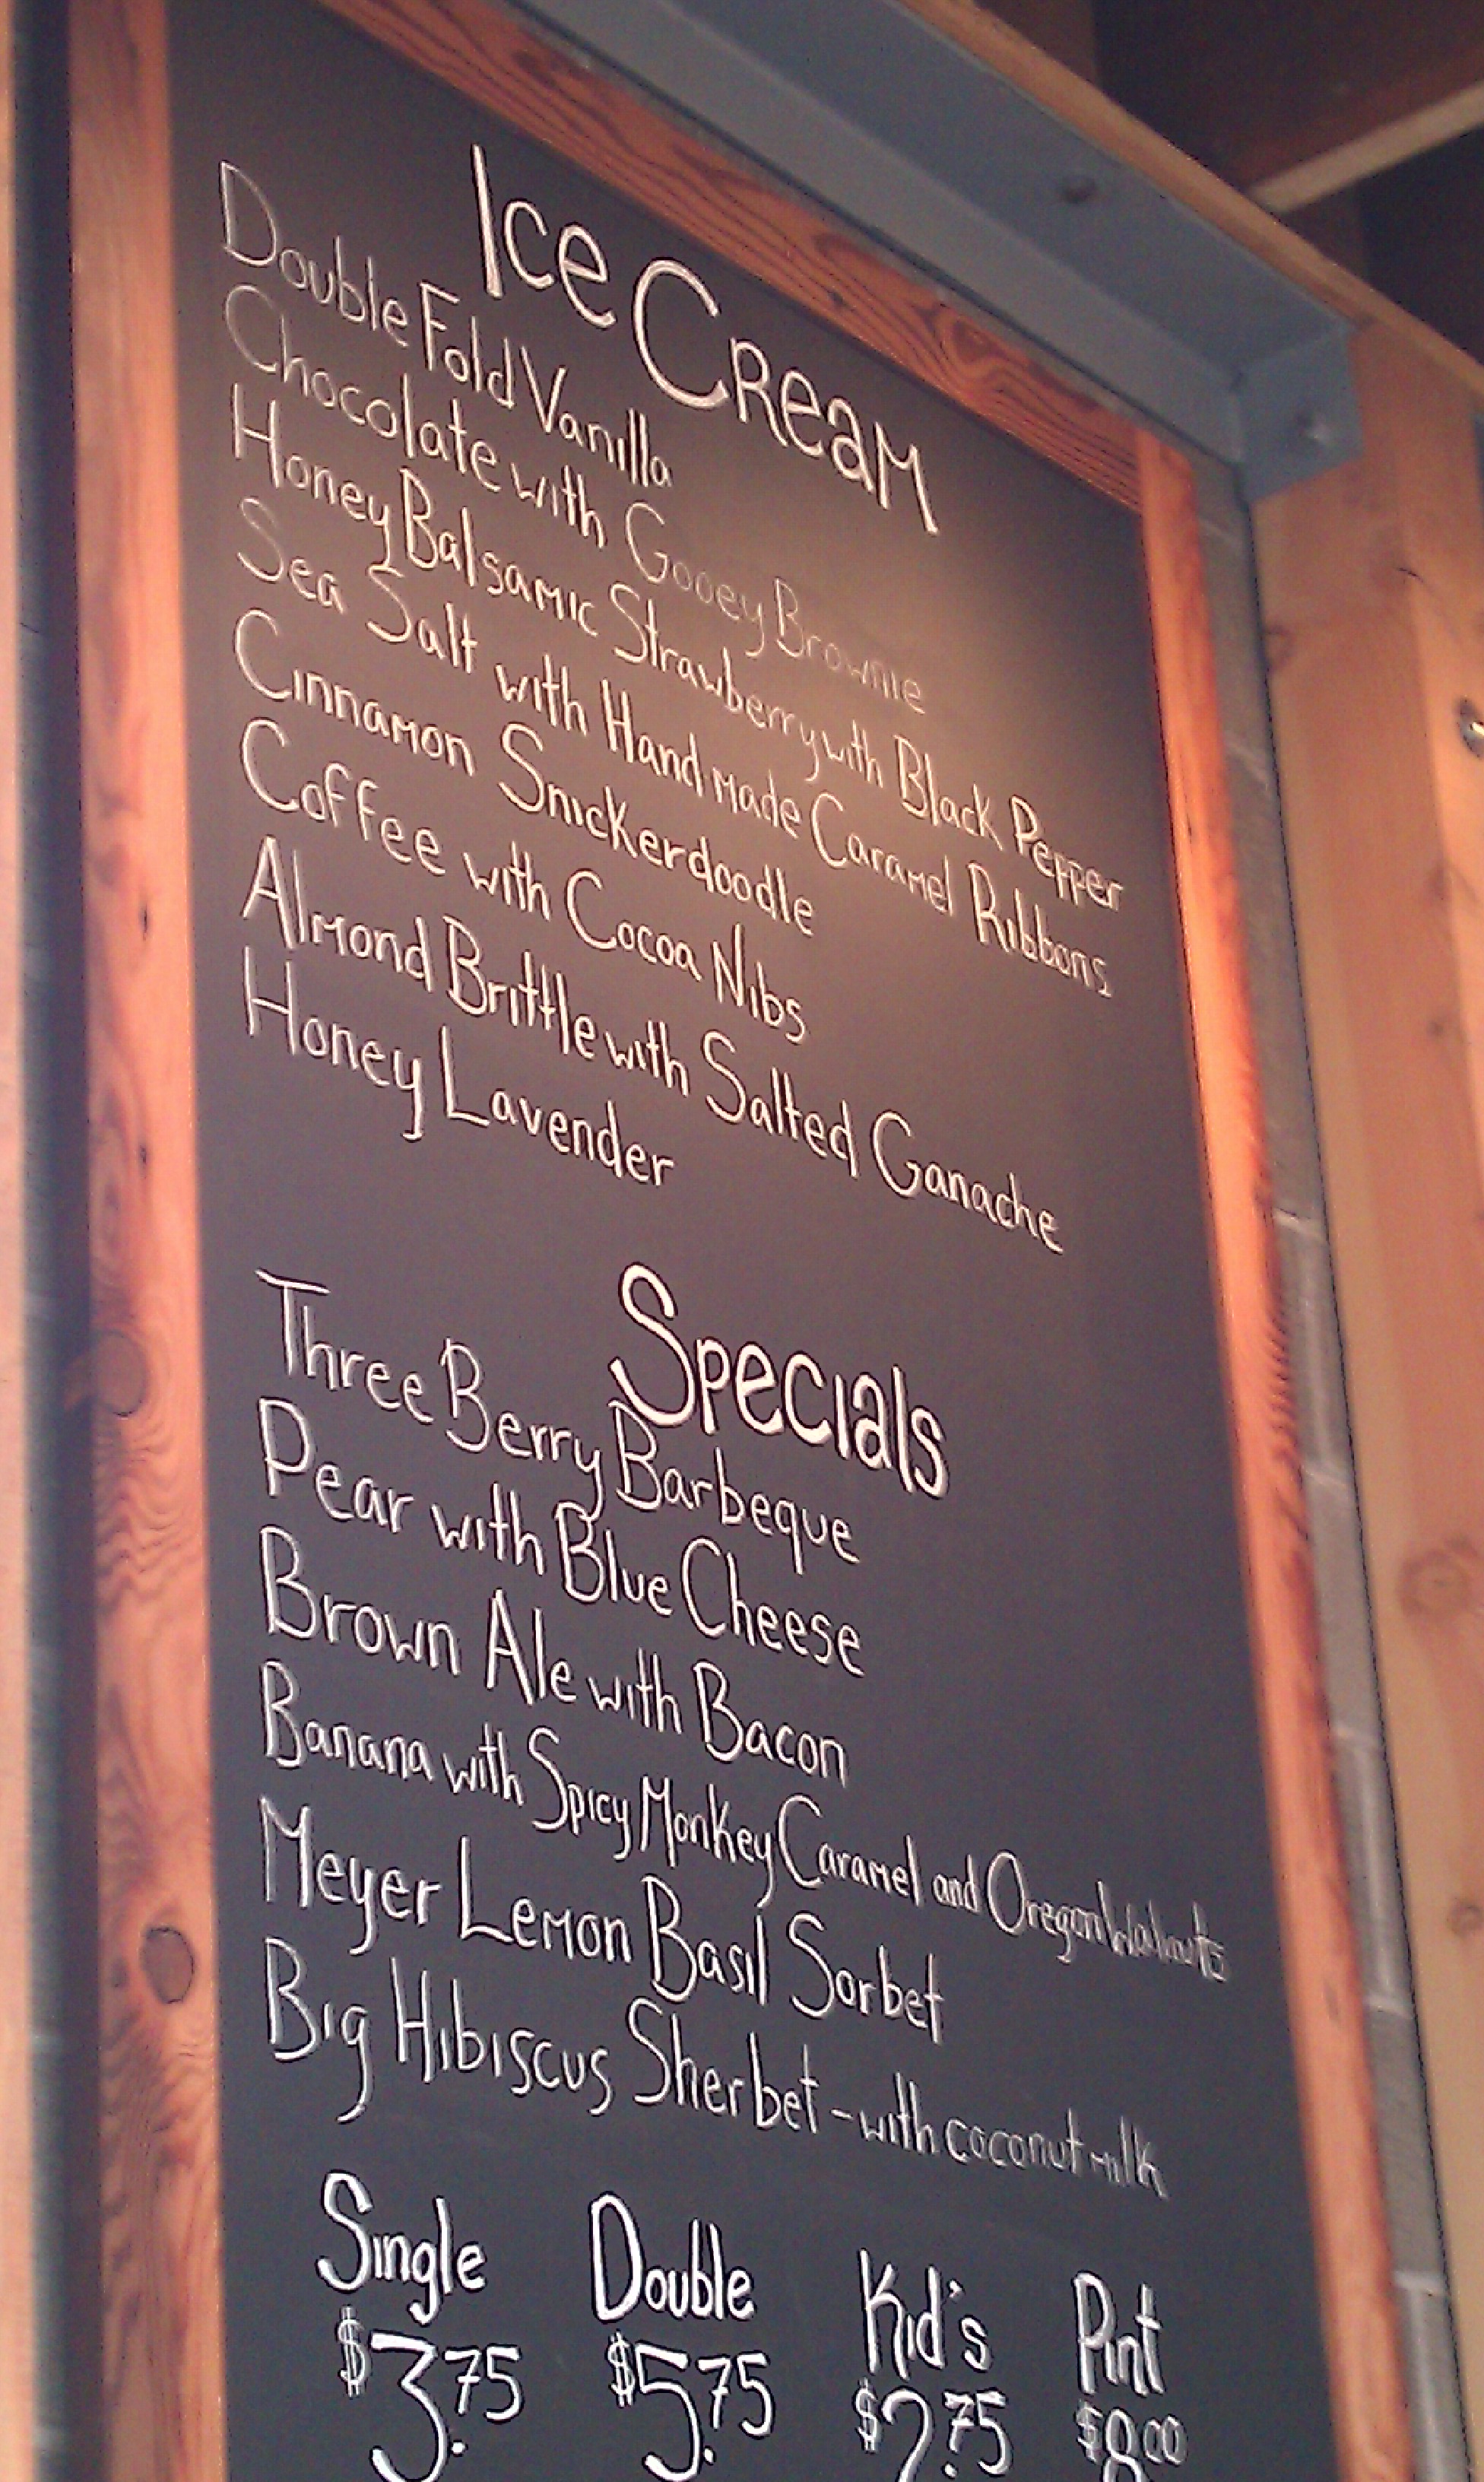 Ice Cream
Double Fold Vanilla
Chocolate with Gooey Brownie
Honey Balsamic Strawberry with Black Pepper
Sea Salt with Handmade Caramel Ribbons
Cinnamon Snickerdoodle
Coffee with Cocoa Nibs
Almond Brittle with Salted Ganache
Honey Lavender
Specials
Three Berry Barbeque
Pear with Blue Cheese
Brown Ale with Bacon
Banana with Spicy Monkey Caramel and Oregon Walnuts
Meyer Lemon Basil Sorbet
Big Hibiscus Sherbet - with coconut milk
Single Double Kid's Pint
$3.75 $5.75 $2.75 $8.00